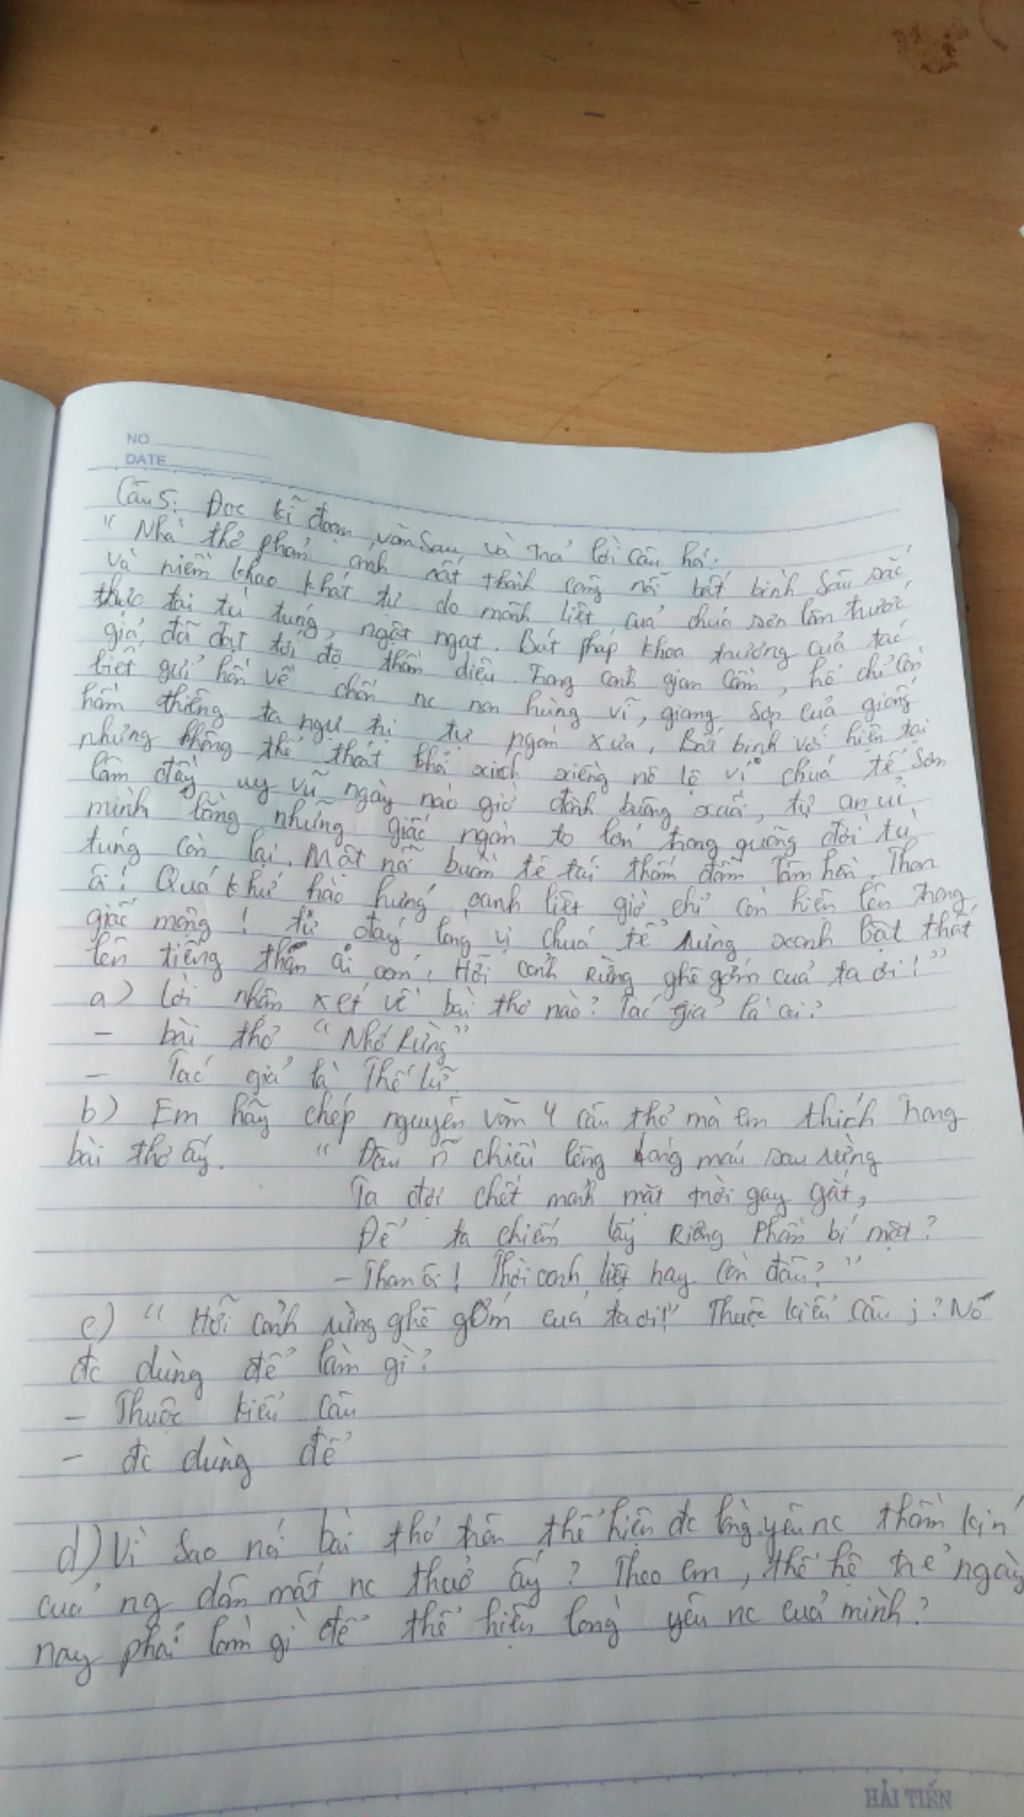 NO
DATE
Câu 5: Đọc kĩ đoạn văn sau và trả lời câu hỏi:
"Nhà thơ phản ánh rất thành công nỗi bất bình sâu sắc
và niềm khao khát tự do mãnh liệt của chúa sơn lâm trước
thực tại tù túng, ngột ngạt. Bút pháp khoa trương của tác
giả đã đạt tới độ thần diệu. Trong cảnh giam cầm, hổ chỉ còn
biết gửi hồn về chốn nc non hùng vĩ, giang sơn của giống
hầm thiêng ta ngự trị tự ngàn xưa. Bất bình với hiện tại
nhưng không thể thoát khỏi xích xiềng nô lệ vị chúa tể sơn
lâm đầy uy vũ ngày nào giờ đành buông xuôi, tự an ủi
mình bằng những giấc ngàn to lớn trong quãng đời tù
túng còn lại. Một nỗi buồn tê tái thấm đẫm tâm hồn. Than
ôi! Quá khứ hào hùng, oanh liệt giờ chỉ còn hiện lên trong
giấc mộng! từ đáy lòng vị chúa tể rừng xanh bật thốt
lên tiếng thân ai oán: Hỡi cảnh Rừng ghê gớm của ta ơi!"
a) Lời nhận xét về bài thơ nào? Tác giả là ai?
- bài thơ "Nhớ Rừng"
- Tác giả là Thế Lữ
b) Em hãy chép nguyên văn 4 câu thơ mà em thích trong
bài thơ ấy. "Đâu n chiều lênh láng máu sau rừng
Ta đợi chết mảnh mặt trời gay gắt,
Để ta chiếm lấy Riêng phần bí mật?
- Than ôi! Thời oanh liệt nay còn đâu?"
c) "Hỡi cảnh rừng ghê gớm của ta ơi!" Thuộc kiểu câu j? Nó
đc dùng để làm gì?
- Thuộc kiểu câu
- đc dùng để
d) Vì sao nói bài thơ trên thể hiện đc lòng yêu nc thầm kín
của ng dân mất nc thuở ấy? Theo em, thế hệ trẻ ngày
nay phải làm gì để thể hiện lòng yêu nc của mình?
HẢI TIẾN